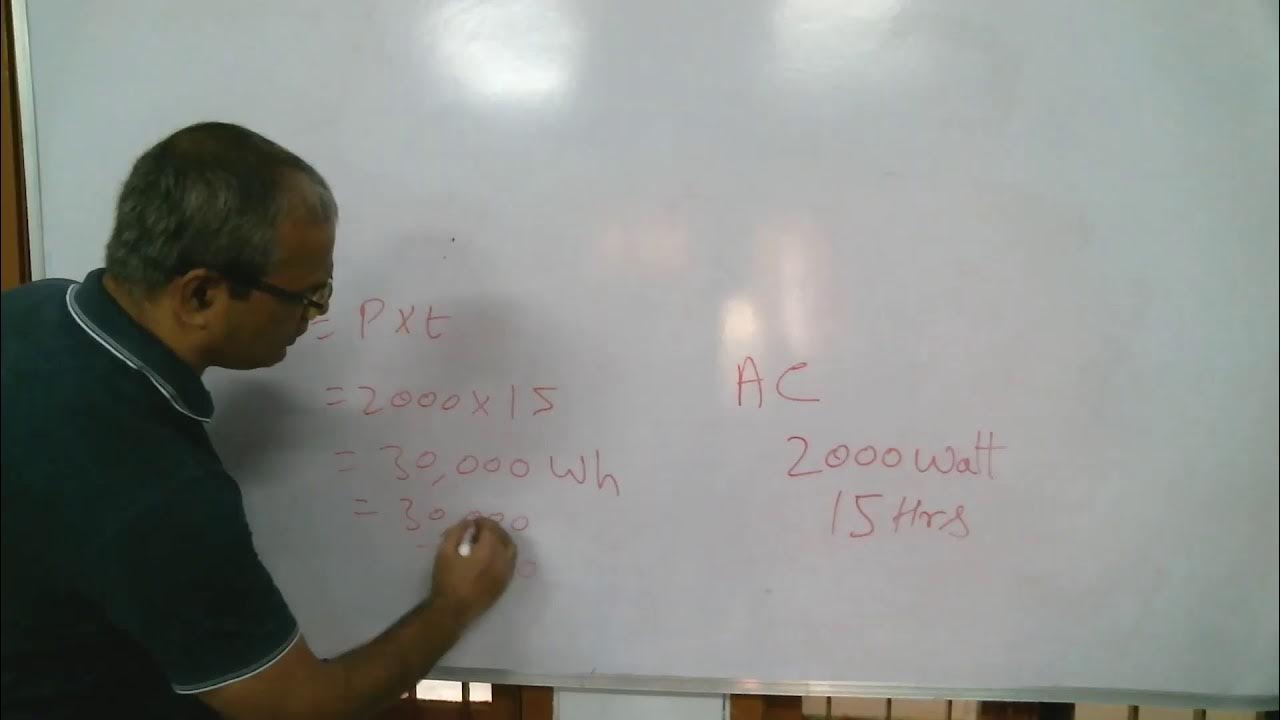 = P x t
= 2000 x 15
= 30,000 Wh
= 30,000
AC
2000 Watt
15 Hrs